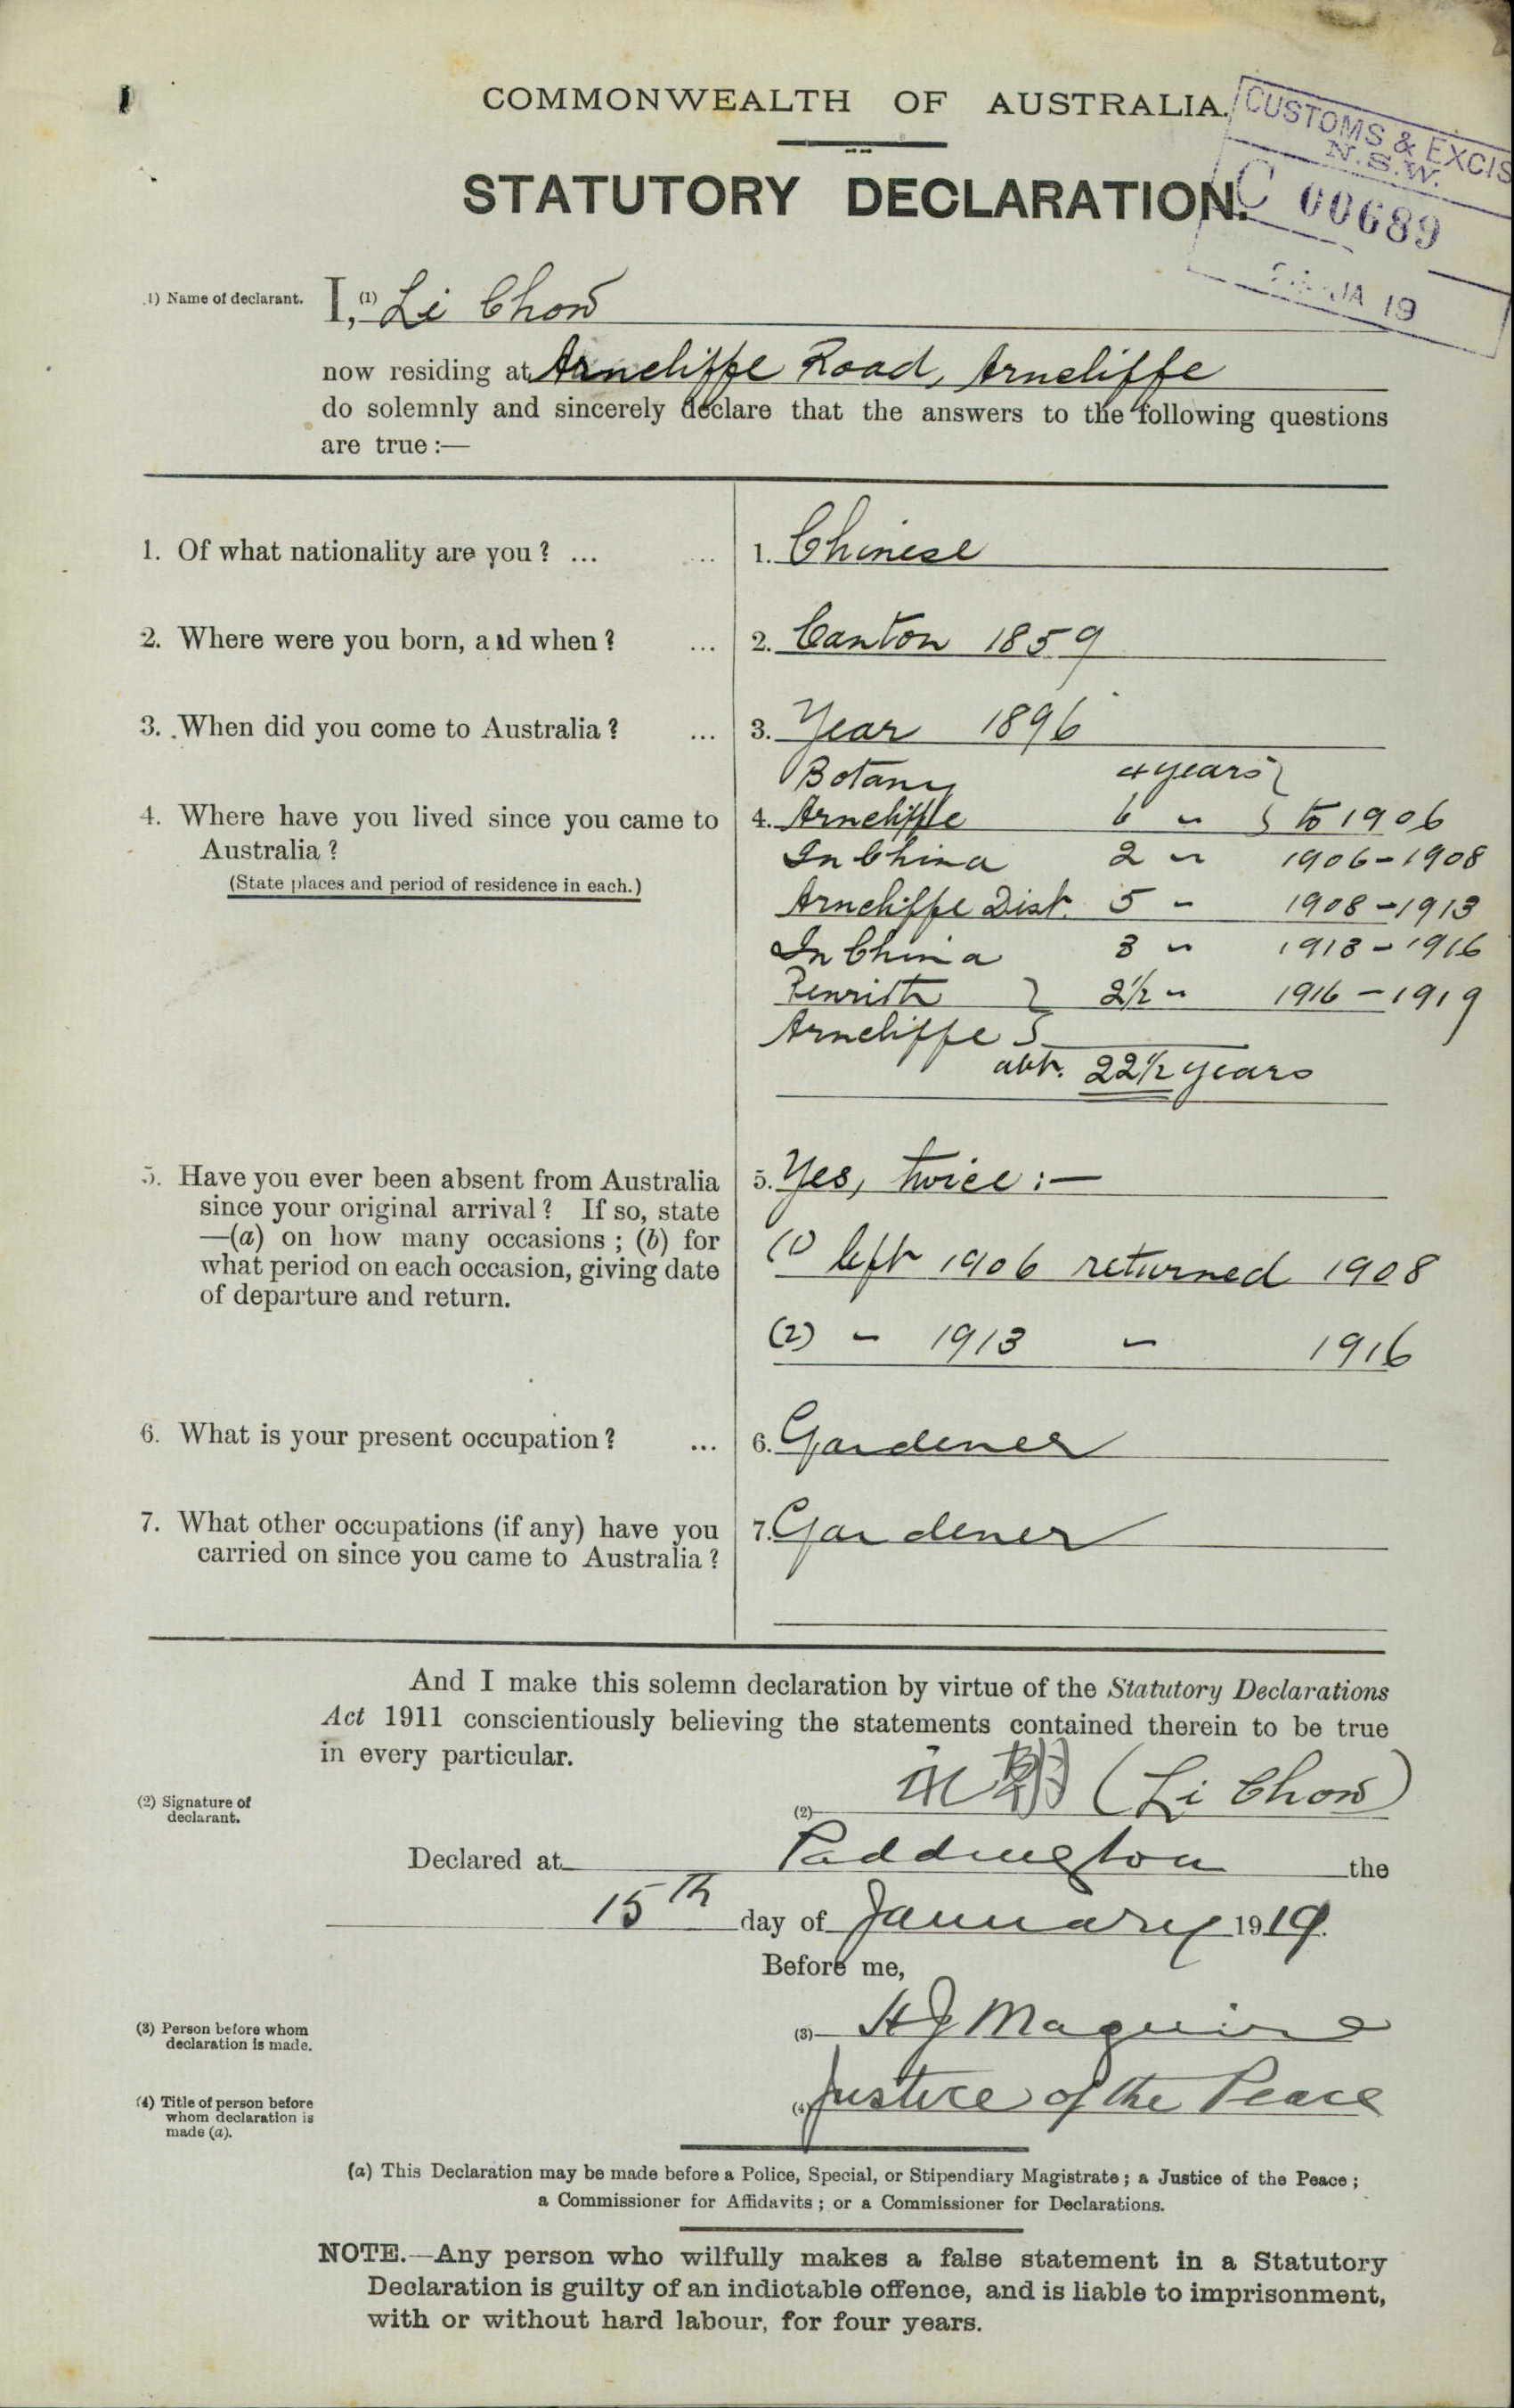 COMMONWEALTH OF AUSTRALIA.
CUSTOMS & EXCIS
N.S.W.
C 00689
JA 19
STATUTORY DECLARATION.
(1) Name of declarant. I, (1) Li Chow
now residing at Arncliffe Road, Arncliffe
do solemnly and sincerely declare that the answers to the following questions
are true :—
1. Of what nationality are you? ... ... 1. Chinese
2. Where were you born, and when? ... 2. Canton 1859
3. When did you come to Australia? ... 3. Year 1896
Botany 4 years }
4. Where have you lived since you came to 4. Arncliffe 6 " } to 1906
Australia? In China 2 " 1906-1908
(State places and period of residence in each.) Arncliffe Dist. 5 " 1908-1913
In China 3 " 1913-1916
Penrith } 2½ " 1916-1919
Arncliffe }
abt. 22½ years
5. Have you ever been absent from Australia 5. Yes, twice :—
since your original arrival? If so, state
—(a) on how many occasions; (b) for (1) left 1906 returned 1908
what period on each occasion, giving date
of departure and return.
(2) " 1913 " 1916
6. What is your present occupation? ... 6. Gardener
7. What other occupations (if any) have you 7. Gardener
carried on since you came to Australia?
And I make this solemn declaration by virtue of the Statutory Declarations
Act 1911 conscientiously believing the statements contained therein to be true
in every particular.
(2) Signature of
declarant. (2) (Li Chow)
Declared at Paddington the
15th day of January 1919.
Before me,
(3) Person before whom
declaration is made. (3) H J Maguire
(4) Title of person before
whom declaration is
made (a). (4) Justice of the Peace
(a) This Declaration may be made before a Police, Special, or Stipendiary Magistrate; a Justice of the Peace;
a Commissioner for Affidavits; or a Commissioner for Declarations.
NOTE.—Any person who wilfully makes a false statement in a Statutory
Declaration is guilty of an indictable offence, and is liable to imprisonment,
with or without hard labour, for four years.